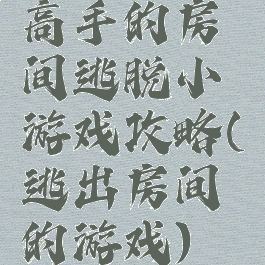 高手的房
间逃脱小
游戏攻略(
逃出房间
的游戏)